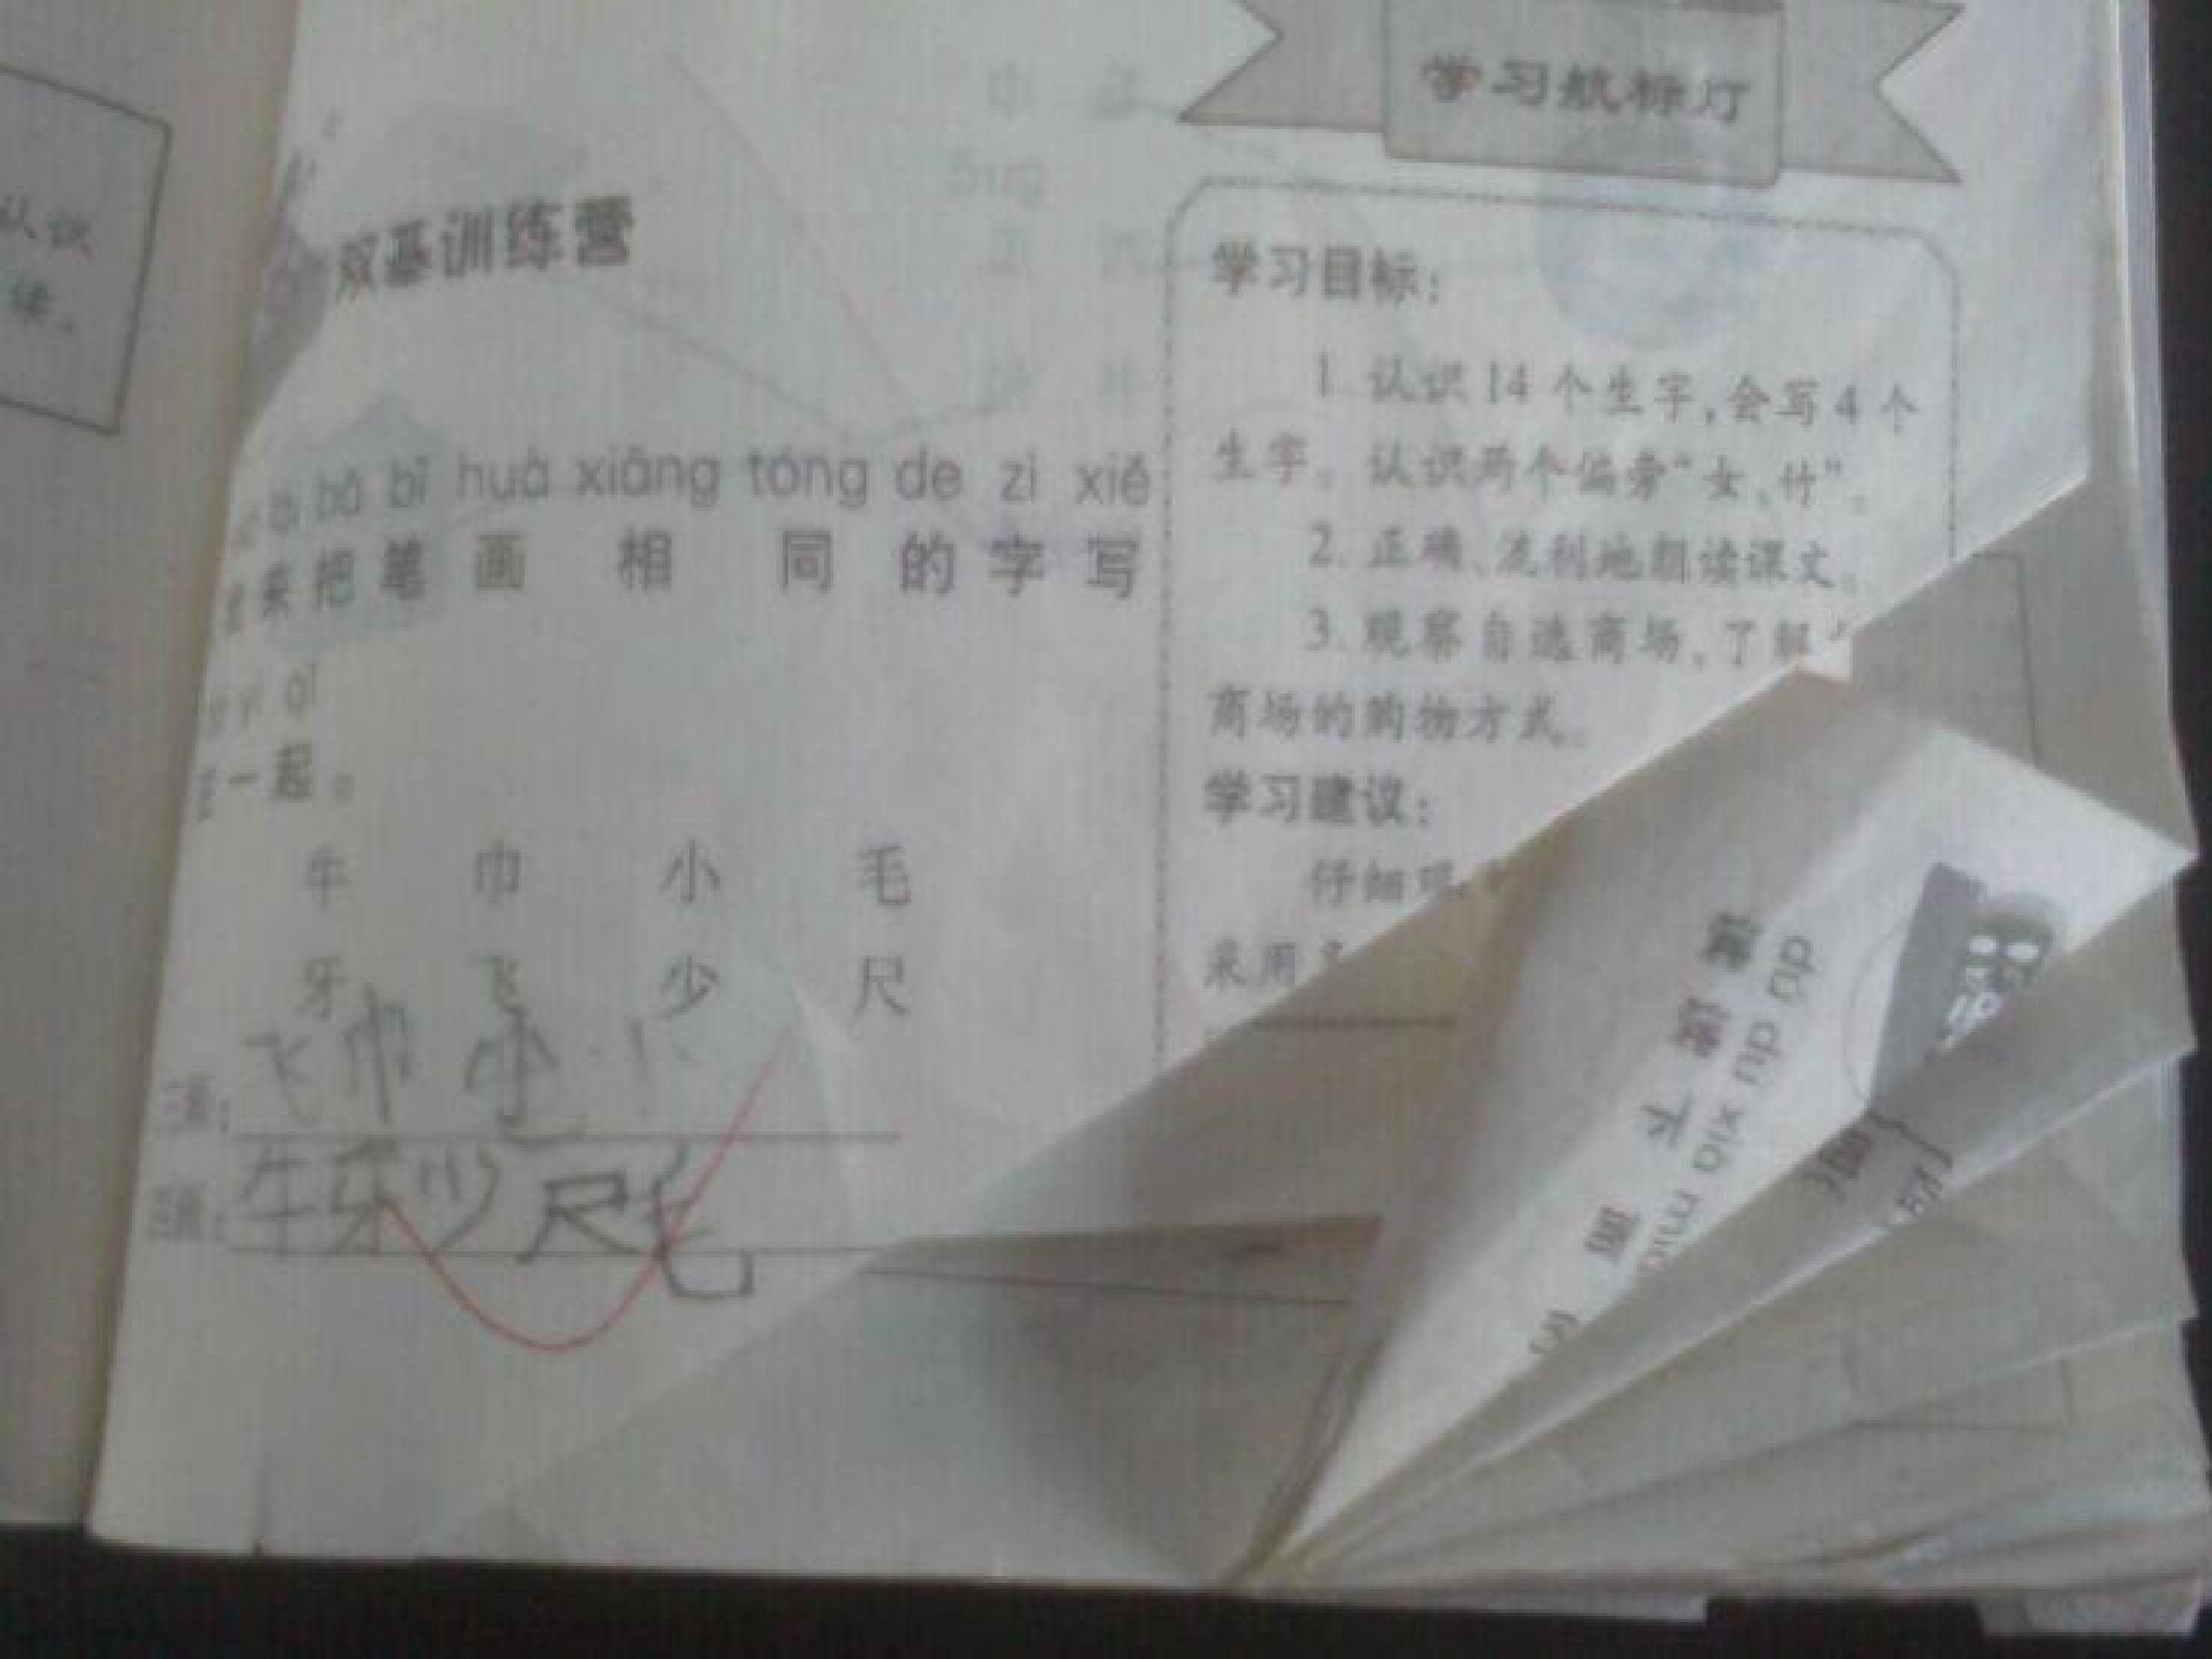 认识
读。
学习航标灯
双基训练营
学习目标：
1. 认识14个生字,会写4个
生字。认识两个偏旁“女、竹”。
2. 正确、流利地朗读课文。
3. 观察自选商场,了解
商场的购物方式。
学习建议：
仔细观
采用
bǎ bǐ huà xiāng tóng de zì xiě
来把笔画相同的字写
yì qǐ
一起。
牛 巾 小 毛
牙 飞 少 尺
飞 巾 小
三画：
牛牙少尺毛
四画：
dú du xià miàn
读读下面